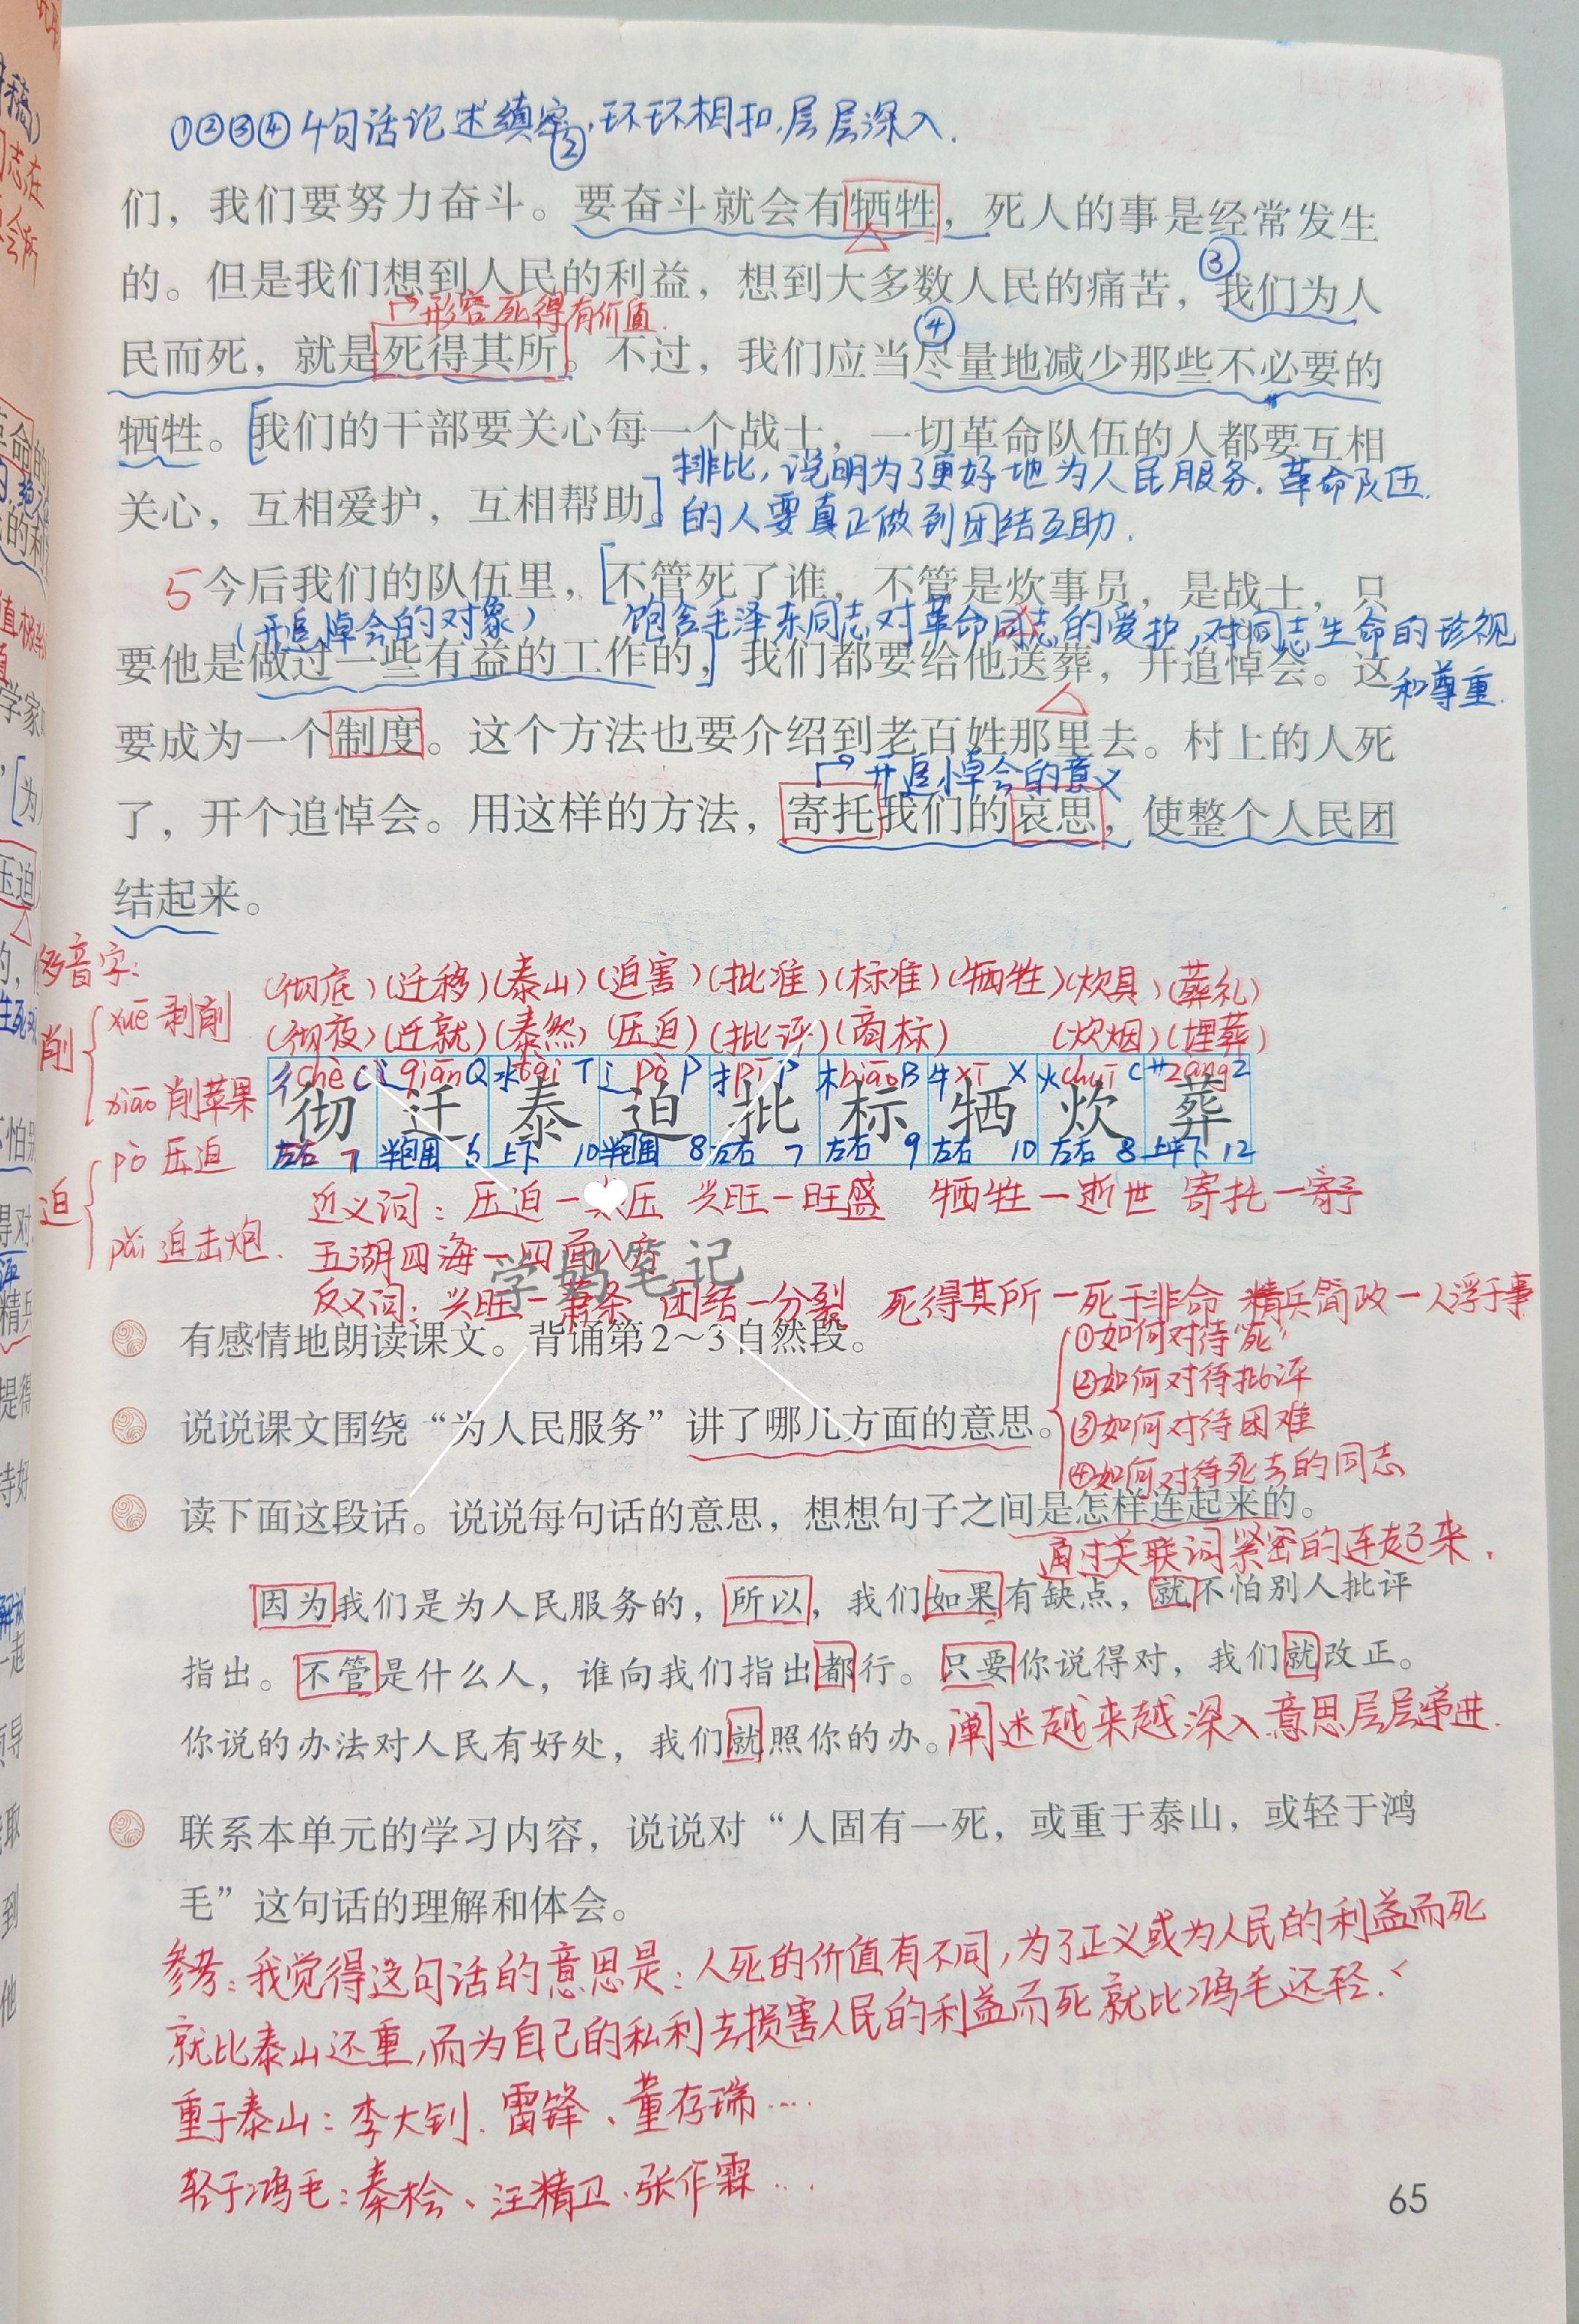 ①②③④4句话记述缜密,环环相扣,层层深入.
②
们，我们要努力奋斗。要奋斗就会有牺牲，死人的事是经常发生
③
的。但是我们想到人民的利益，想到大多数人民的痛苦，我们为人
形容死得有价值.
④
民而死，就是死得其所。不过，我们应当尽量地减少那些不必要的
牺牲。[我们的干部要关心每一个战士，一切革命队伍的人都要互相
排比,说明为了更好地为人民服务.革命队伍
关心，互相爱护，互相帮助。]
的人要真正做到团结互助.
5 今后我们的队伍里，[不管死了谁，不管是炊事员，是战士，只
(开追悼会的对象)
饱含毛泽东同志对革命同志的爱护,对同志生命的珍视
和尊重.
要他是做过一些有益的工作的，]我们都要给他送葬，开追悼会。这
要成为一个制度。这个方法也要介绍到老百姓那里去。村上的人死
开追悼会的意义
了，开个追悼会。用这样的方法，寄托我们的哀思，使整个人民团
结起来。
多音字:
削
xuē 剥削
xiāo 削苹果
迫
pò 压迫
pǎi 迫击炮.
(彻底)(迁移)(泰山)(迫害)(批准)(标准)(牺牲)(炊具)(葬礼)
(彻夜)(迁就)(泰然)(压迫)(批评)(商标) (炊烟)(埋葬)
彳chè C 辶qiān Q 氺tài T 辶pò P 扌pī P 木biāo B 牛xī X 火chuī C 艹zàng Z
彻 迁 泰 迫 批 标 牺 炊 葬
左右 7 半包围 6 上下 10 半包围 8 左右 7 左右 9 左右 10 左右 8 上中下 12
近义词: 压迫—压 兴旺—旺盛 牺牲—逝世 寄托—寄予
五湖四海—四面八方
学妈笔记
反义词: 兴旺—萧条 团结—分裂 死得其所—死于非命 精兵简政—人浮于事
有感情地朗读课文。背诵第2～3自然段。
说说课文围绕“为人民服务”讲了哪几方面的意思。
①如何对待“死”
②如何对待批评
③如何对待困难
④如何对待死去的同志
读下面这段话。说说每句话的意思，想想句子之间是怎样连起来的。
通过关联词紧密的连起来.
因为我们是为人民服务的，所以，我们如果有缺点，就不怕别人批评
指出。不管是什么人，谁向我们指出都行。只要你说得对，我们就改正。
你说的办法对人民有好处，我们就照你的办。阐述越来越深入,意思层层递进.
联系本单元的学习内容，说说对“人固有一死，或重于泰山，或轻于鸿
毛”这句话的理解和体会。
参考:我觉得这句话的意思是:人死的价值有不同,为了正义或为人民的利益而死
就比泰山还重,而为自己的私利去损害人民的利益而死就比鸿毛还轻.
重于泰山:李大钊、雷锋、董存瑞…
轻于鸿毛:秦桧、汪精卫、张作霖…
65